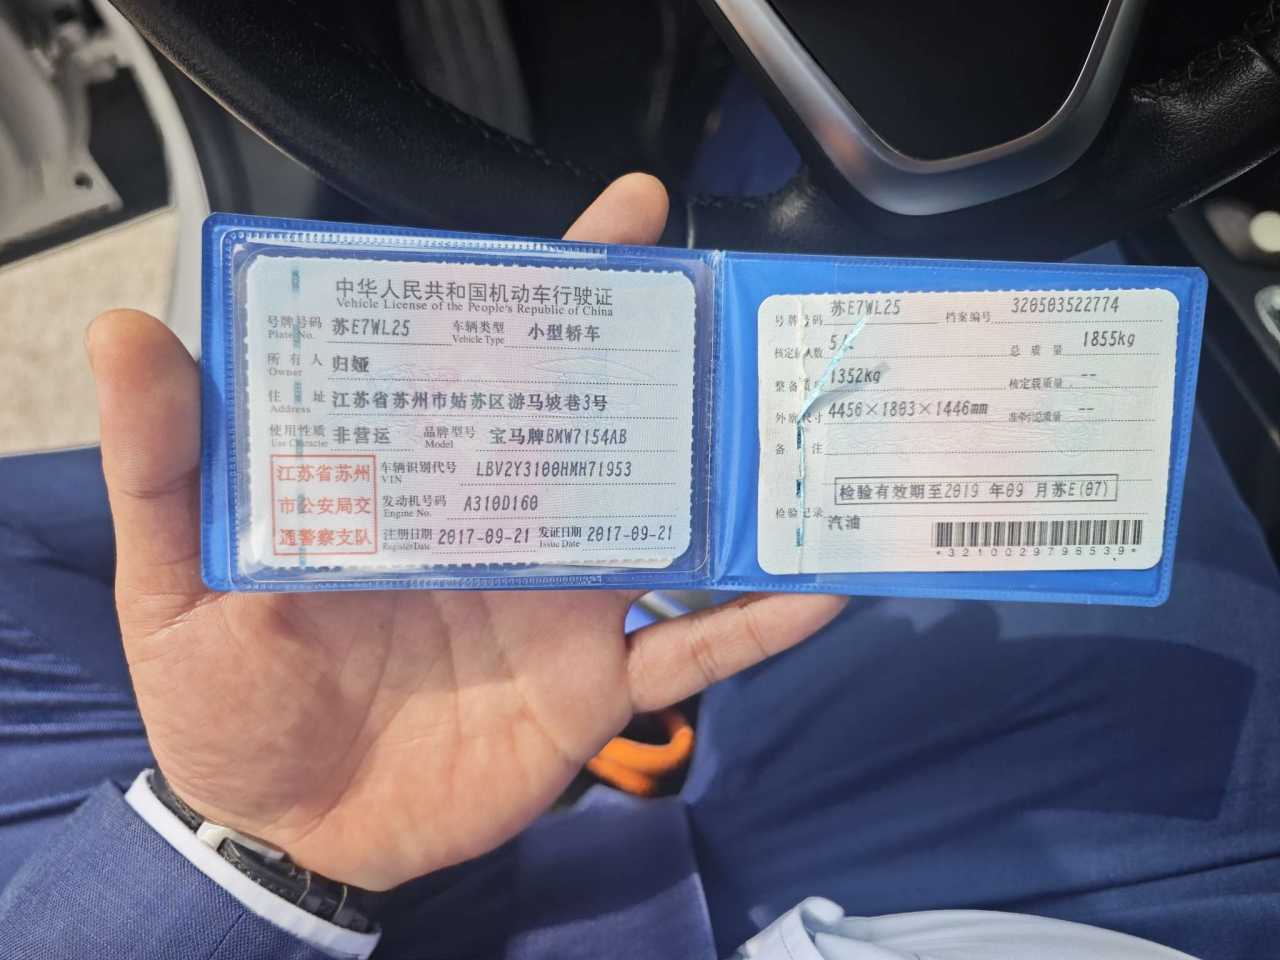 中华人民共和国机动车行驶证
Vehicle License of the People's Republic of China
号牌号码 苏E7WL25 车辆类型 小型轿车
Plate No. Vehicle Type
所有人 归娅
Owner
住址 江苏省苏州市姑苏区游马坡巷3号
Address
使用性质 非营运 品牌型号 宝马牌BMW7154AB
Use Character Model
江苏省苏州
市公安局交
通警察支队
车辆识别代号 LBV2Y3100HMH71953
VIN
发动机号码 A310D160
Engine No.
注册日期 2017-09-21 发证日期 2017-09-21
Register Date Issue Date
号牌号码 苏E7WL25 档案编号 320503522774
核定载人数 5人 总质量 1855kg
整备质量 1352kg 核定载质量 --
外廓尺寸 4456×1803×1446mm 准牵引总质量 --
备注
检验有效期至2019 年09 月苏E(07)
检验记录
汽油
*3210029796539*